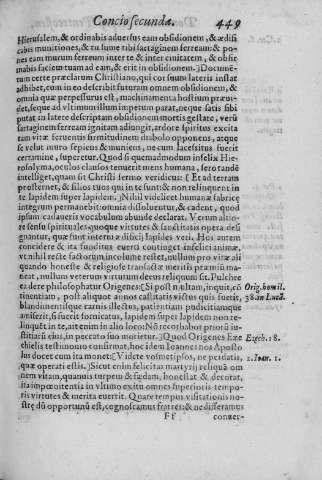 Concio secunda. 449
Hierusalem, & ordinabis adversus eam obsidionem, & ædifi
cabis munitiones, & tu sume tibi sartaginem ferream: & po-
nes eam murum ferreum inter te & inter civitatem, & obfir
mabis faciem tuam ad eam, & erit in obsidionem.] Documē-
tum certe præclarum Christiano, qui cor suum lateris instar
adhibet, cum in eo describit futuram omnem obsidionem, &
omnia quæ perpessurus est, machinamenta hostium præui-
det, seque ad vltimum illum impetum parat, neque satis sibi
putat in latere descriptam obsidionem mortis gestare, verū
sartaginem ferream ignitam adiungit, ardore spiritus excita
tam vitæ feruentis firmitudinem diabolo opponens, atque
se velut muro sepiens & muniens, ne cum lacessitus fuerit
certamine, superetur. Quod si quemadmodum infelix Hie-
rosolyma, oculos clausos tenuerit mens humana, sero tandē
intelliget, quam sit Christi sermo veridicus: [Et ad terram
prosternet, & filios tuos qui in te sunt: & non relinquent in
te lapidem super lapidem.] Nihil videlicet humanæ fabricæ
integrum permanebit: omnia dissoluetur, & cadent, quod
ipsum cadaueris vocabulum abunde declarat. Verum altio-
re sensu spirituales quoque virtutes & sanctitatis opera desi
gnantur, quæ interni ædificij lapides veri. Hos autem
concidere & ita funditus euerti contingit infelici animæ,
vt nihil reste factorum, incolume restet, nullum pro vitæ ali
quando honeste & religiose transactæ meritis præmiū ma-
neat, nullum veterum virtutum decus reliquum sit. Pulchre
ea dere philosophatur Origenes: [Si post multam, inquit, cō Orig. homil.
tinentiam, post aliquot annos castitatis victus quis fuerit, 38. in Lucā.
blandimentisque carnis illectus, patientiam pudicitiamque
amiserit, si fuerit fornicatus, lapidem super lapidem non re-
linquēt in te, ait enim in alio loco: Nō recorbabor prioris iu-
stitiæ eius, in peccato suo morietur.] Quod Origenes Eze Ezech. 18.
chielis testimonio confirmat, hoc idem Ioannes nos Aposto
lus docet cum ita monet: [Videte vosmetipsos, ne perdatis, 2. Ioan. 1.
quæ operati estis.] Sicut enim felicitas martyrij reliquā om
nem vitam, quamuis turpem & fœdam, honestat & decorat,
ita impœnitentia in vltimo exitu omnes superioris tempo-
ris virtutes & merita euertit. Quare tempus visitationis no-
stræ dū opportunū est, cognoscamus fratres: & ne differamus
Ff conuer-